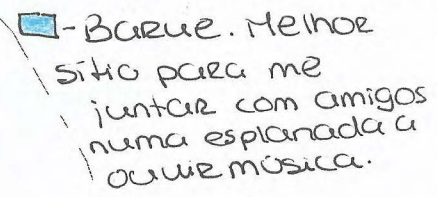 - Barue. Melhor
sítio para me
juntar com amigos
numa esplanada a
ouvir música.